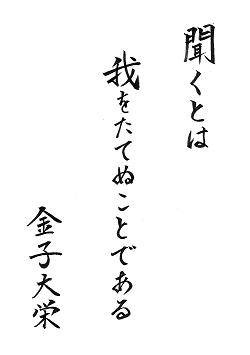 聞くとは
我をたてぬことである
金子大栄